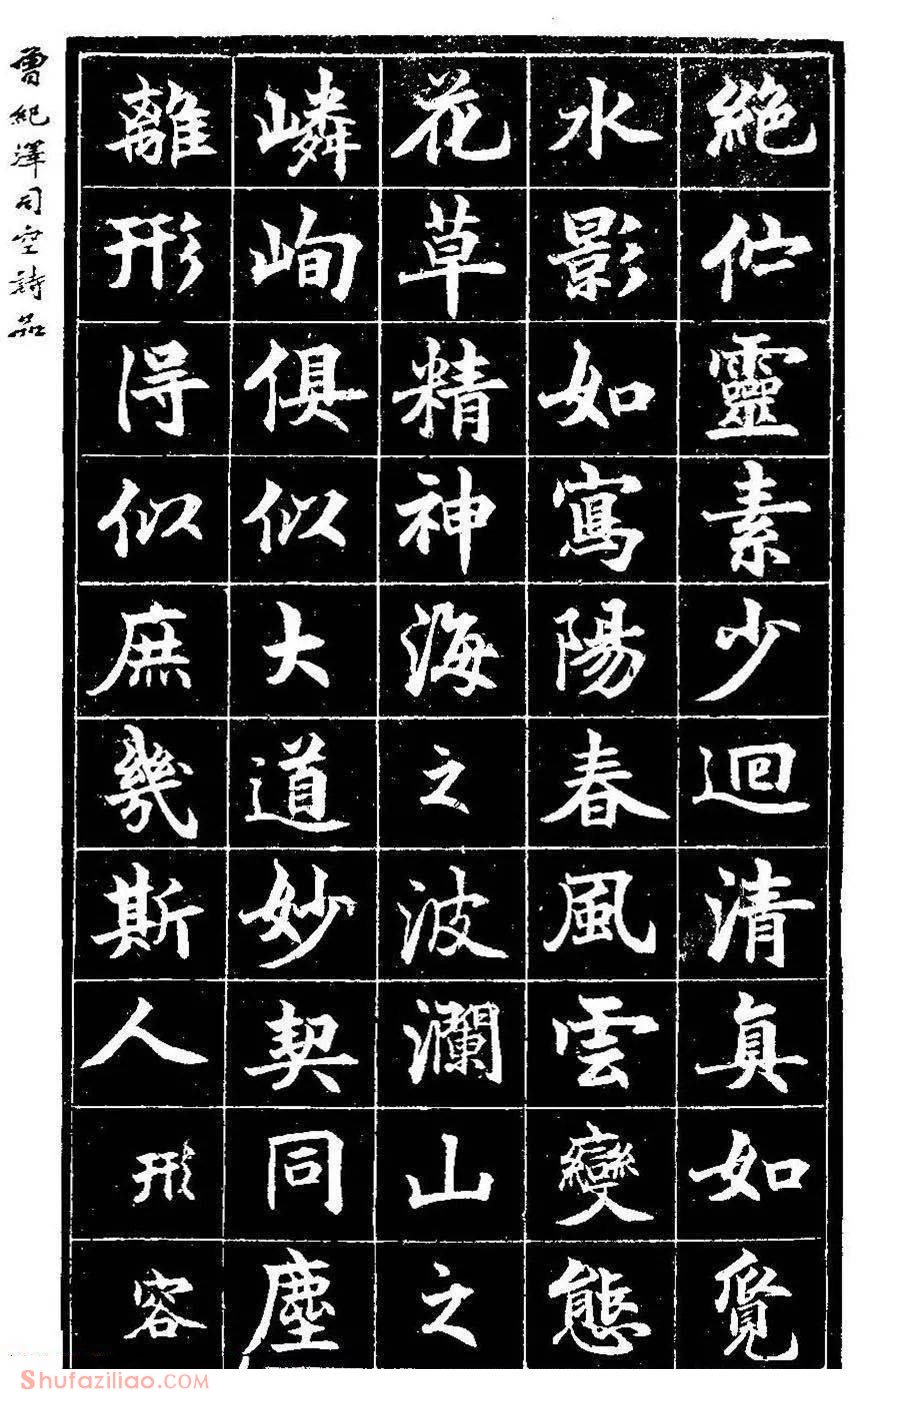 絕佇靈素少迴清真如覓
水影如寫陽春風雲變態
花草精神海之波瀾山之
嶙峋俱似大道妙契同塵
離形得似庶幾斯人形容
曾紀澤司空詩品
Shufaziliao.COM